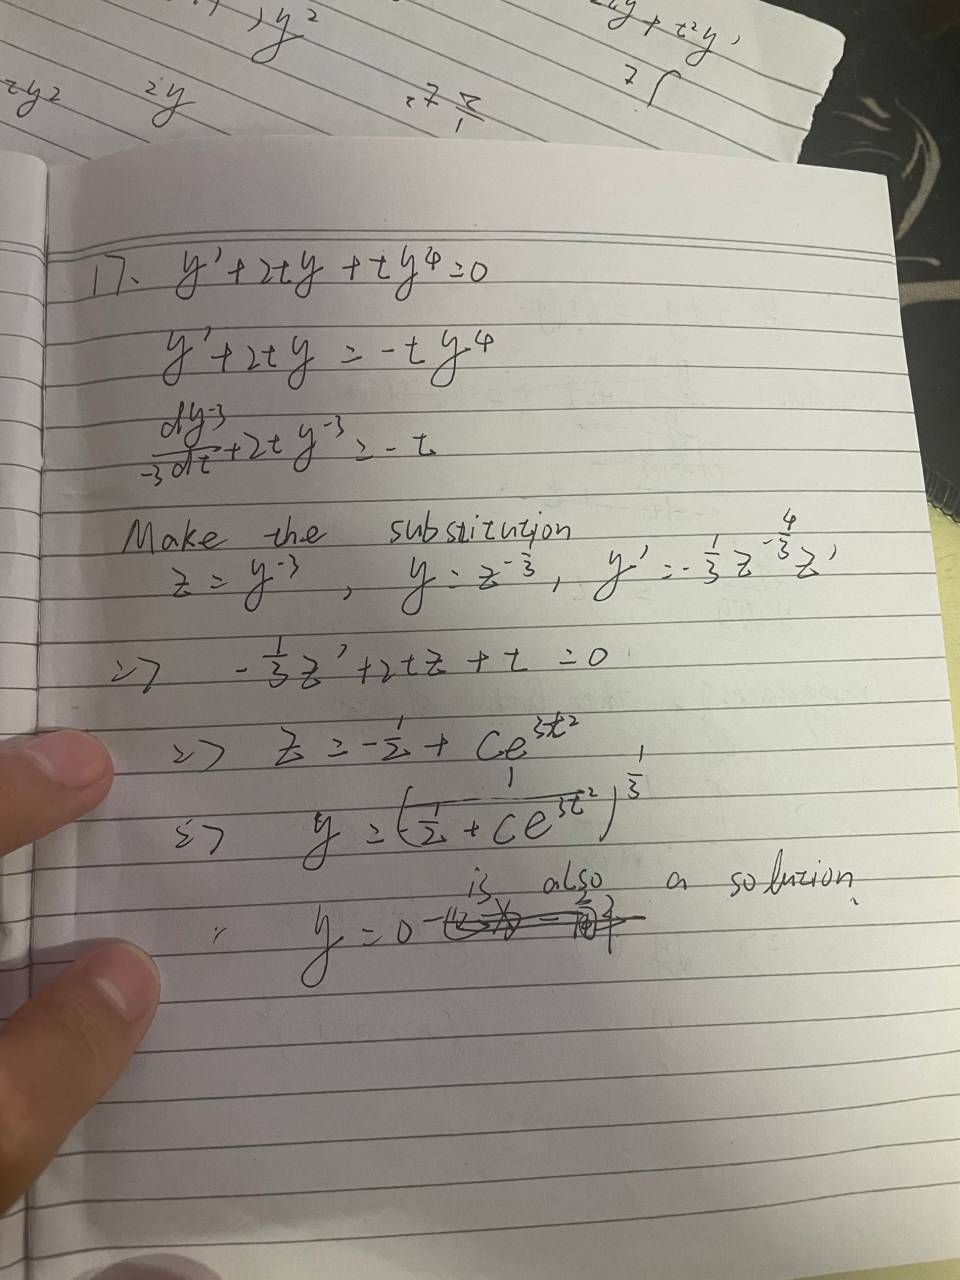 y²
+ t²y'
2y
17. y' + 2ty + ty⁴ = 0
y' + 2ty = -ty⁴
dy⁻³/-3dt + 2ty⁻³ = -t
Make the substitution
z = y⁻³, y = z^(-1/3), y' = -1/3 z^(-4/3) z'
=> -1/3 z' + 2tz + t = 0
=> z = -1/2 + Ce^(3t²)
=> y = (1/(-1/2 + Ce^(3t²)))^(1/3)
y = 0 is also a solution.